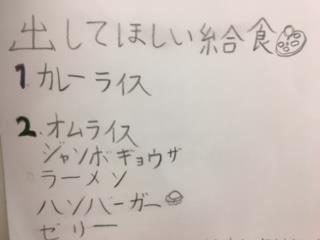 出してほしい給食
1.カレーライス
2.オムライス
ジャンボギョウザ
ラーメン
ハンバーガー
ゼリー